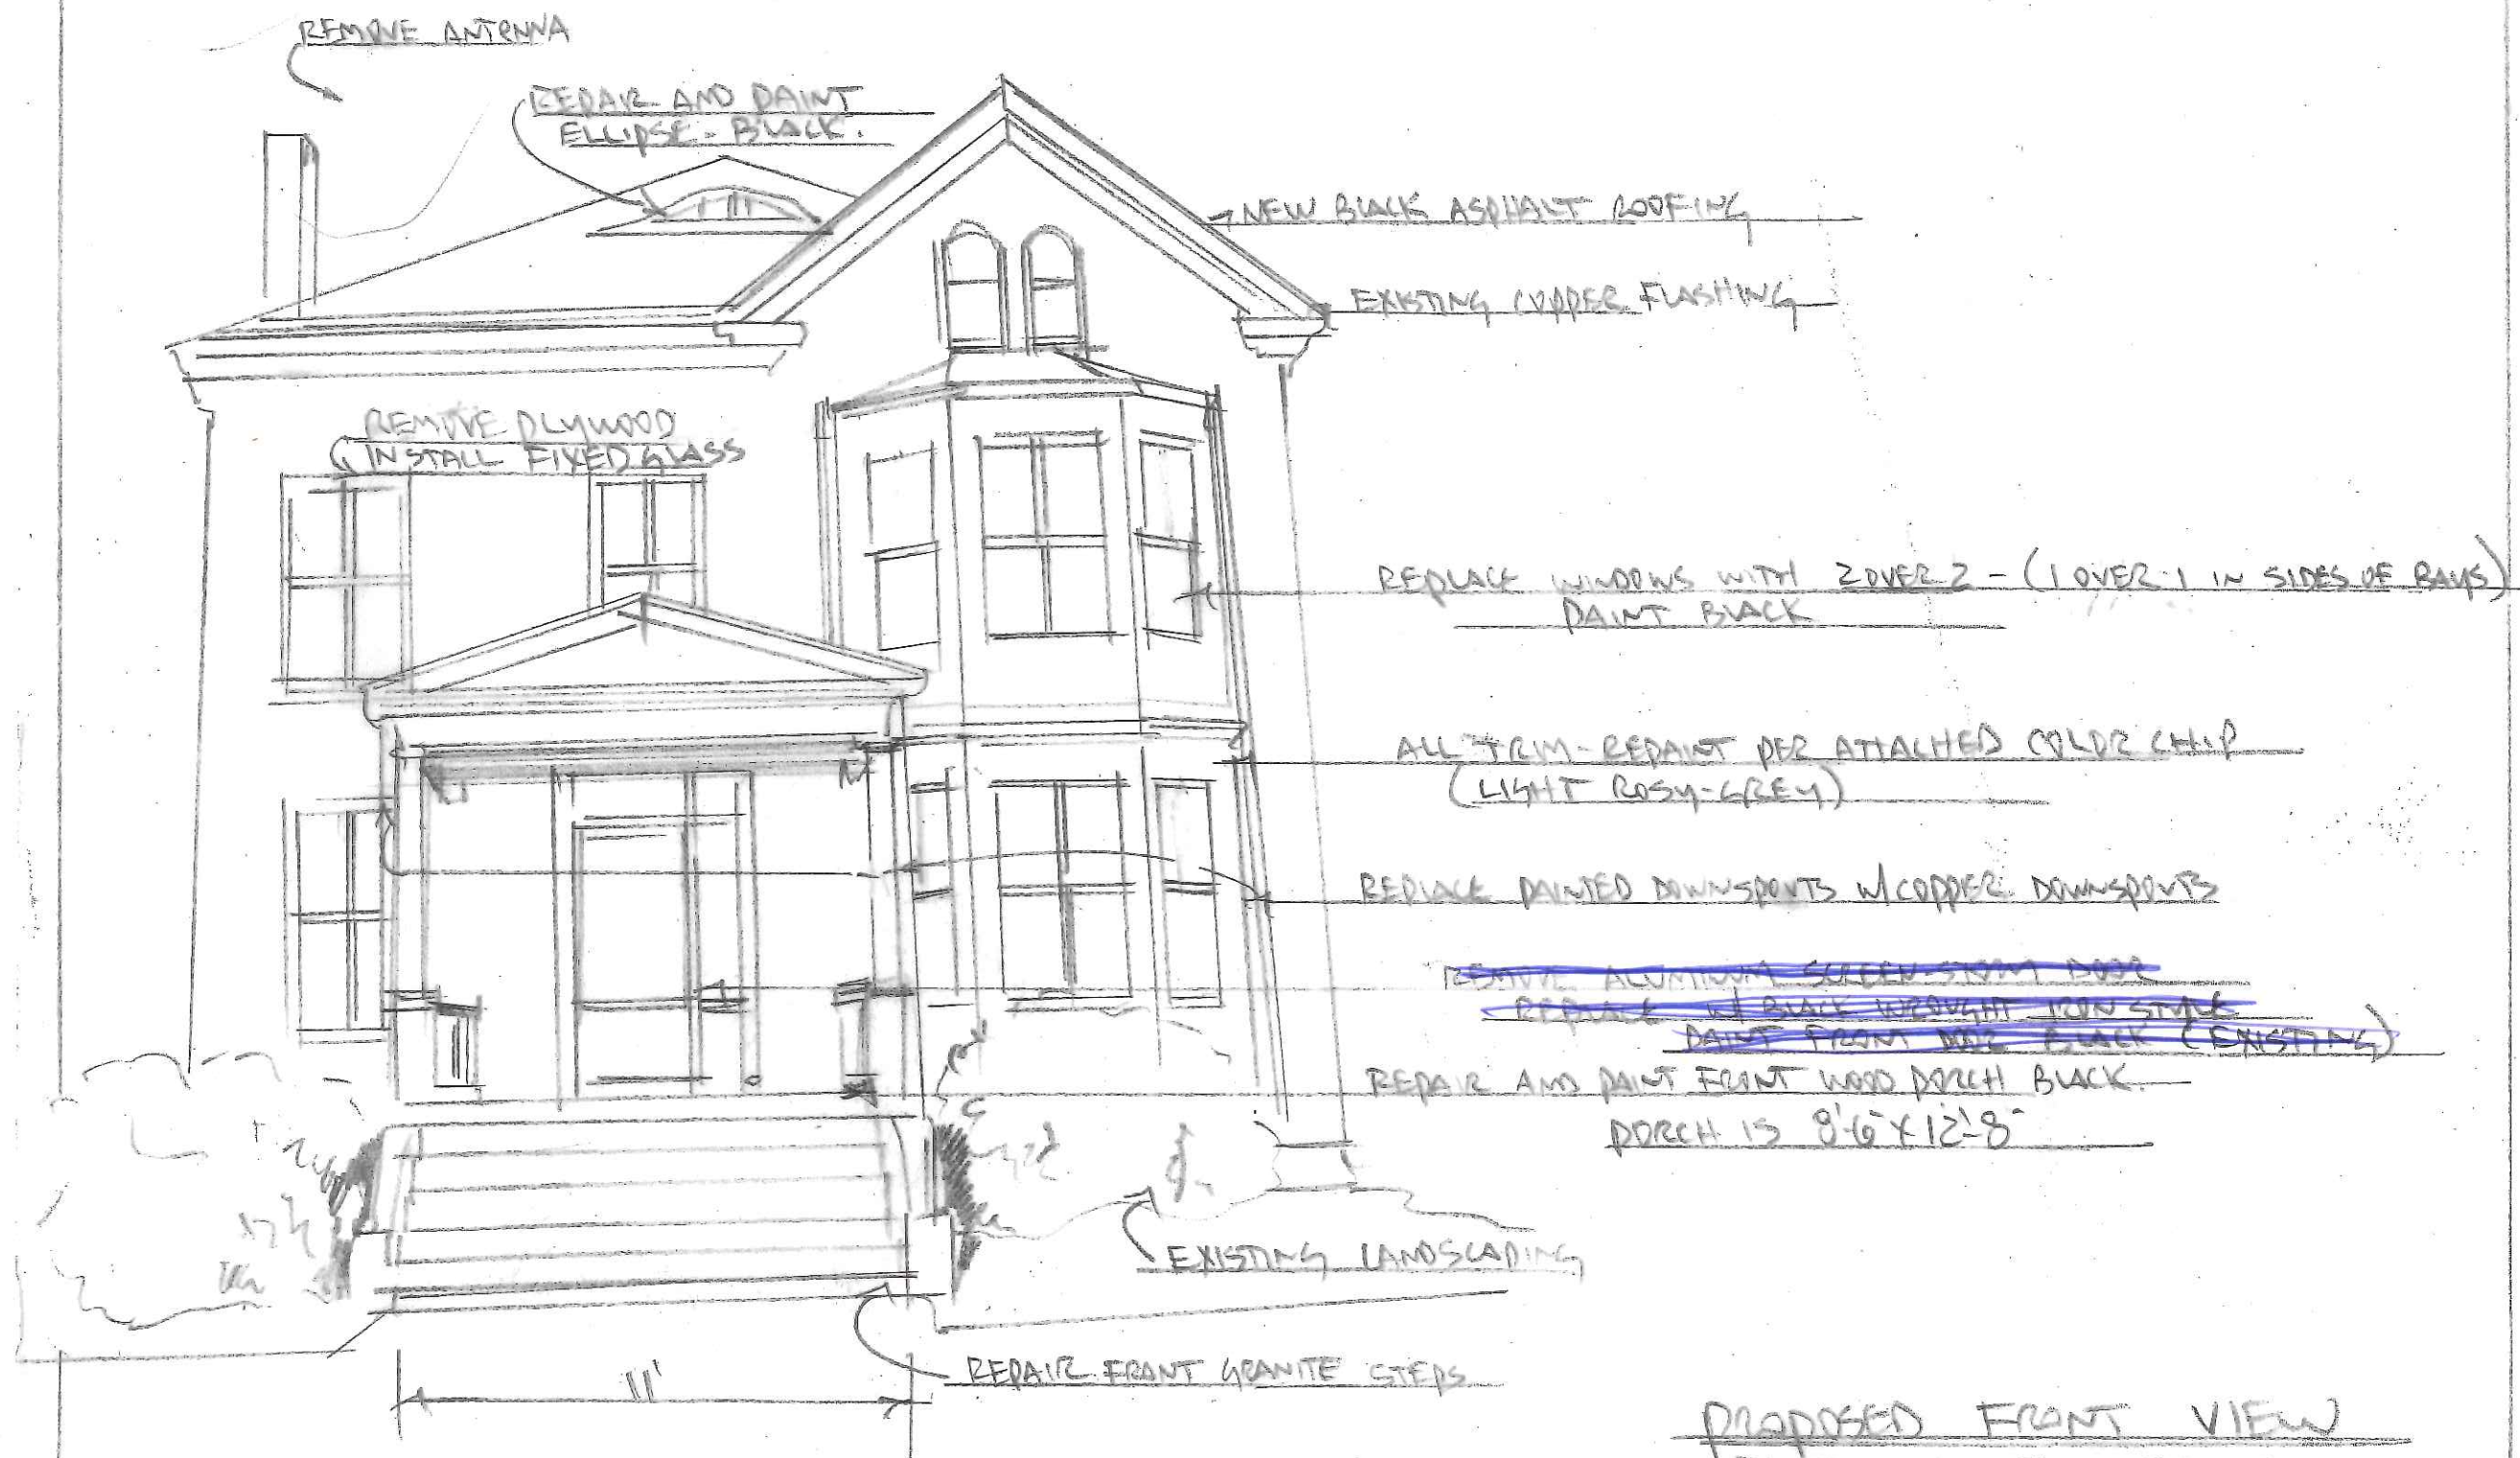 REMOVE ANTENNA
REPAIR AND PAINT
ELLIPSE - BLACK.
NEW BLACK ASPHALT ROOFING
EXISTING COPPER FLASHING
REMOVE PLYWOOD
INSTALL FIXED GLASS
REPLACE WINDOWS WITH 2 OVER 2 - (1 OVER 1 IN SIDES OF BAYS)
PAINT BLACK
ALL TRIM - REPAINT PER ATTACHED COLOR CHIP
(LIGHT ROSY-GREY)
REPLACE PAINTED DOWNSPOUTS W/ COPPER DOWNSPOUTS
REMOVE ALUMINUM SCREEN-STORM DOOR
REPLACE W/ BLACK WROUGHT IRON STYLE
PAINT FRONT DOOR BLACK (EXISTING)
REPAIR AND PAINT FRONT WOOD PORCH BLACK.
PORCH IS 8'-6" X 12'-8"
EXISTING LANDSCAPING
REPAIR FRONT GRANITE STEPS
11'
PROPOSED FRONT VIEW